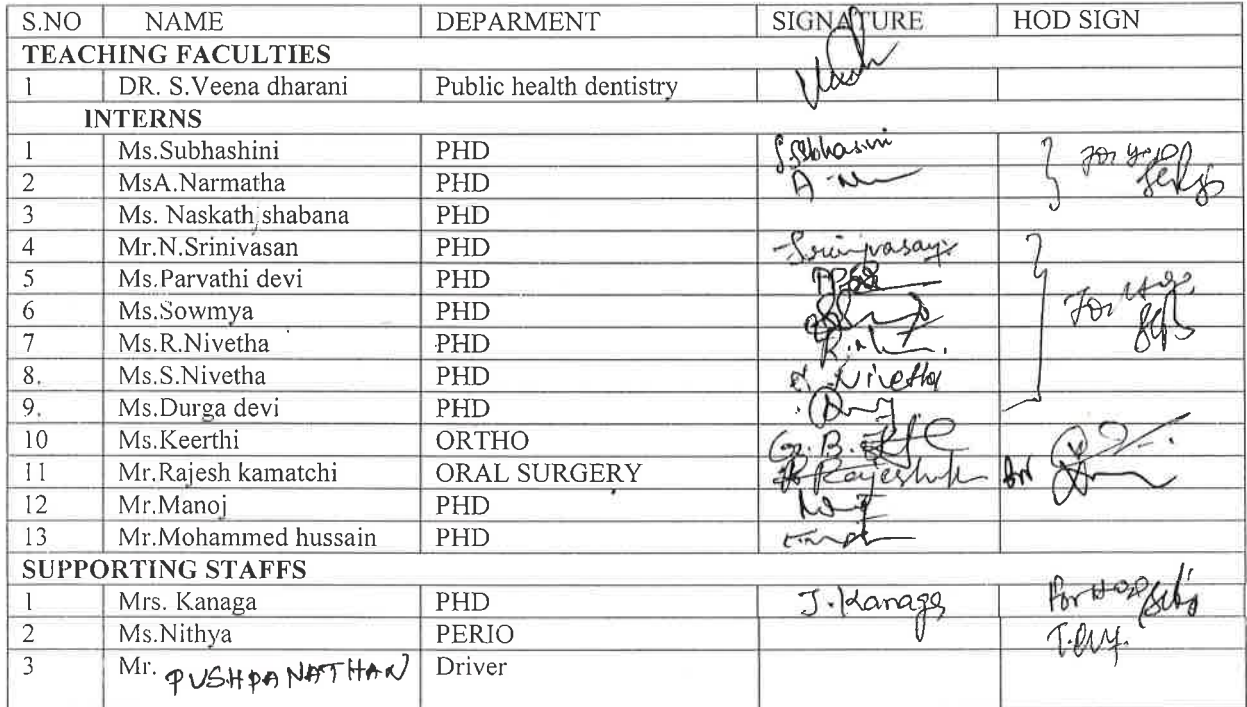 S.NO NAME DEPARMENT SIGNATURE HOD SIGN
TEACHING FACULTIES
1 DR. S.Veena dharani Public health dentistry
INTERNS
1 Ms.Subhashini PHD S.Subhasini
2 MsA.Narmatha PHD
3 Ms. Naskath shabana PHD
4 Mr.N.Srinivasan PHD
5 Ms.Parvathi devi PHD
6 Ms.Sowmya PHD
7 Ms.R.Nivetha PHD
8. Ms.S.Nivetha PHD Nivetha
9. Ms.Durga devi PHD
10 Ms.Keerthi ORTHO
11 Mr.Rajesh kamatchi ORAL SURGERY
12 Mr.Manoj PHD
13 Mr.Mohammed hussain PHD
SUPPORTING STAFFS
1 Mrs. Kanaga PHD J.Kanaga For HOD
2 Ms.Nithya PERIO
3 Mr. PUSHPANATHAN Driver